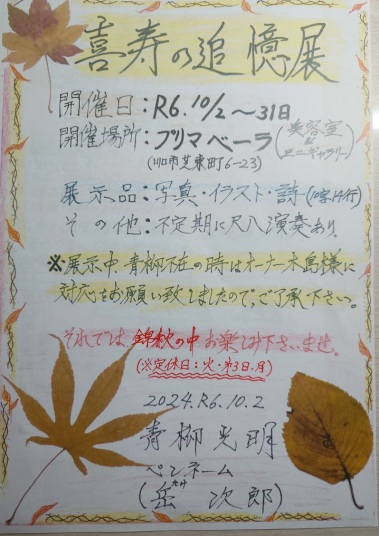 喜寿の追憶展
開催日：R6.10/2～31日
開催場所：プリマベーラ(美容室&ミニギャラリー)
(川口市芝東町6-23)
展示品：写真・イラスト・詩(10字14行)
その他：不定期に尺八演奏あり。
※展示中、青柳不在の時はオーナー木島様に
対応をお願い致しましたので、ご了承下さい。
それでは錦秋の中お楽しみ下さいませ。
(※定休日：火・第3日、月)
2024.R6.10.2
青柳光明
ペンネーム
(岳 次郎)
たけ